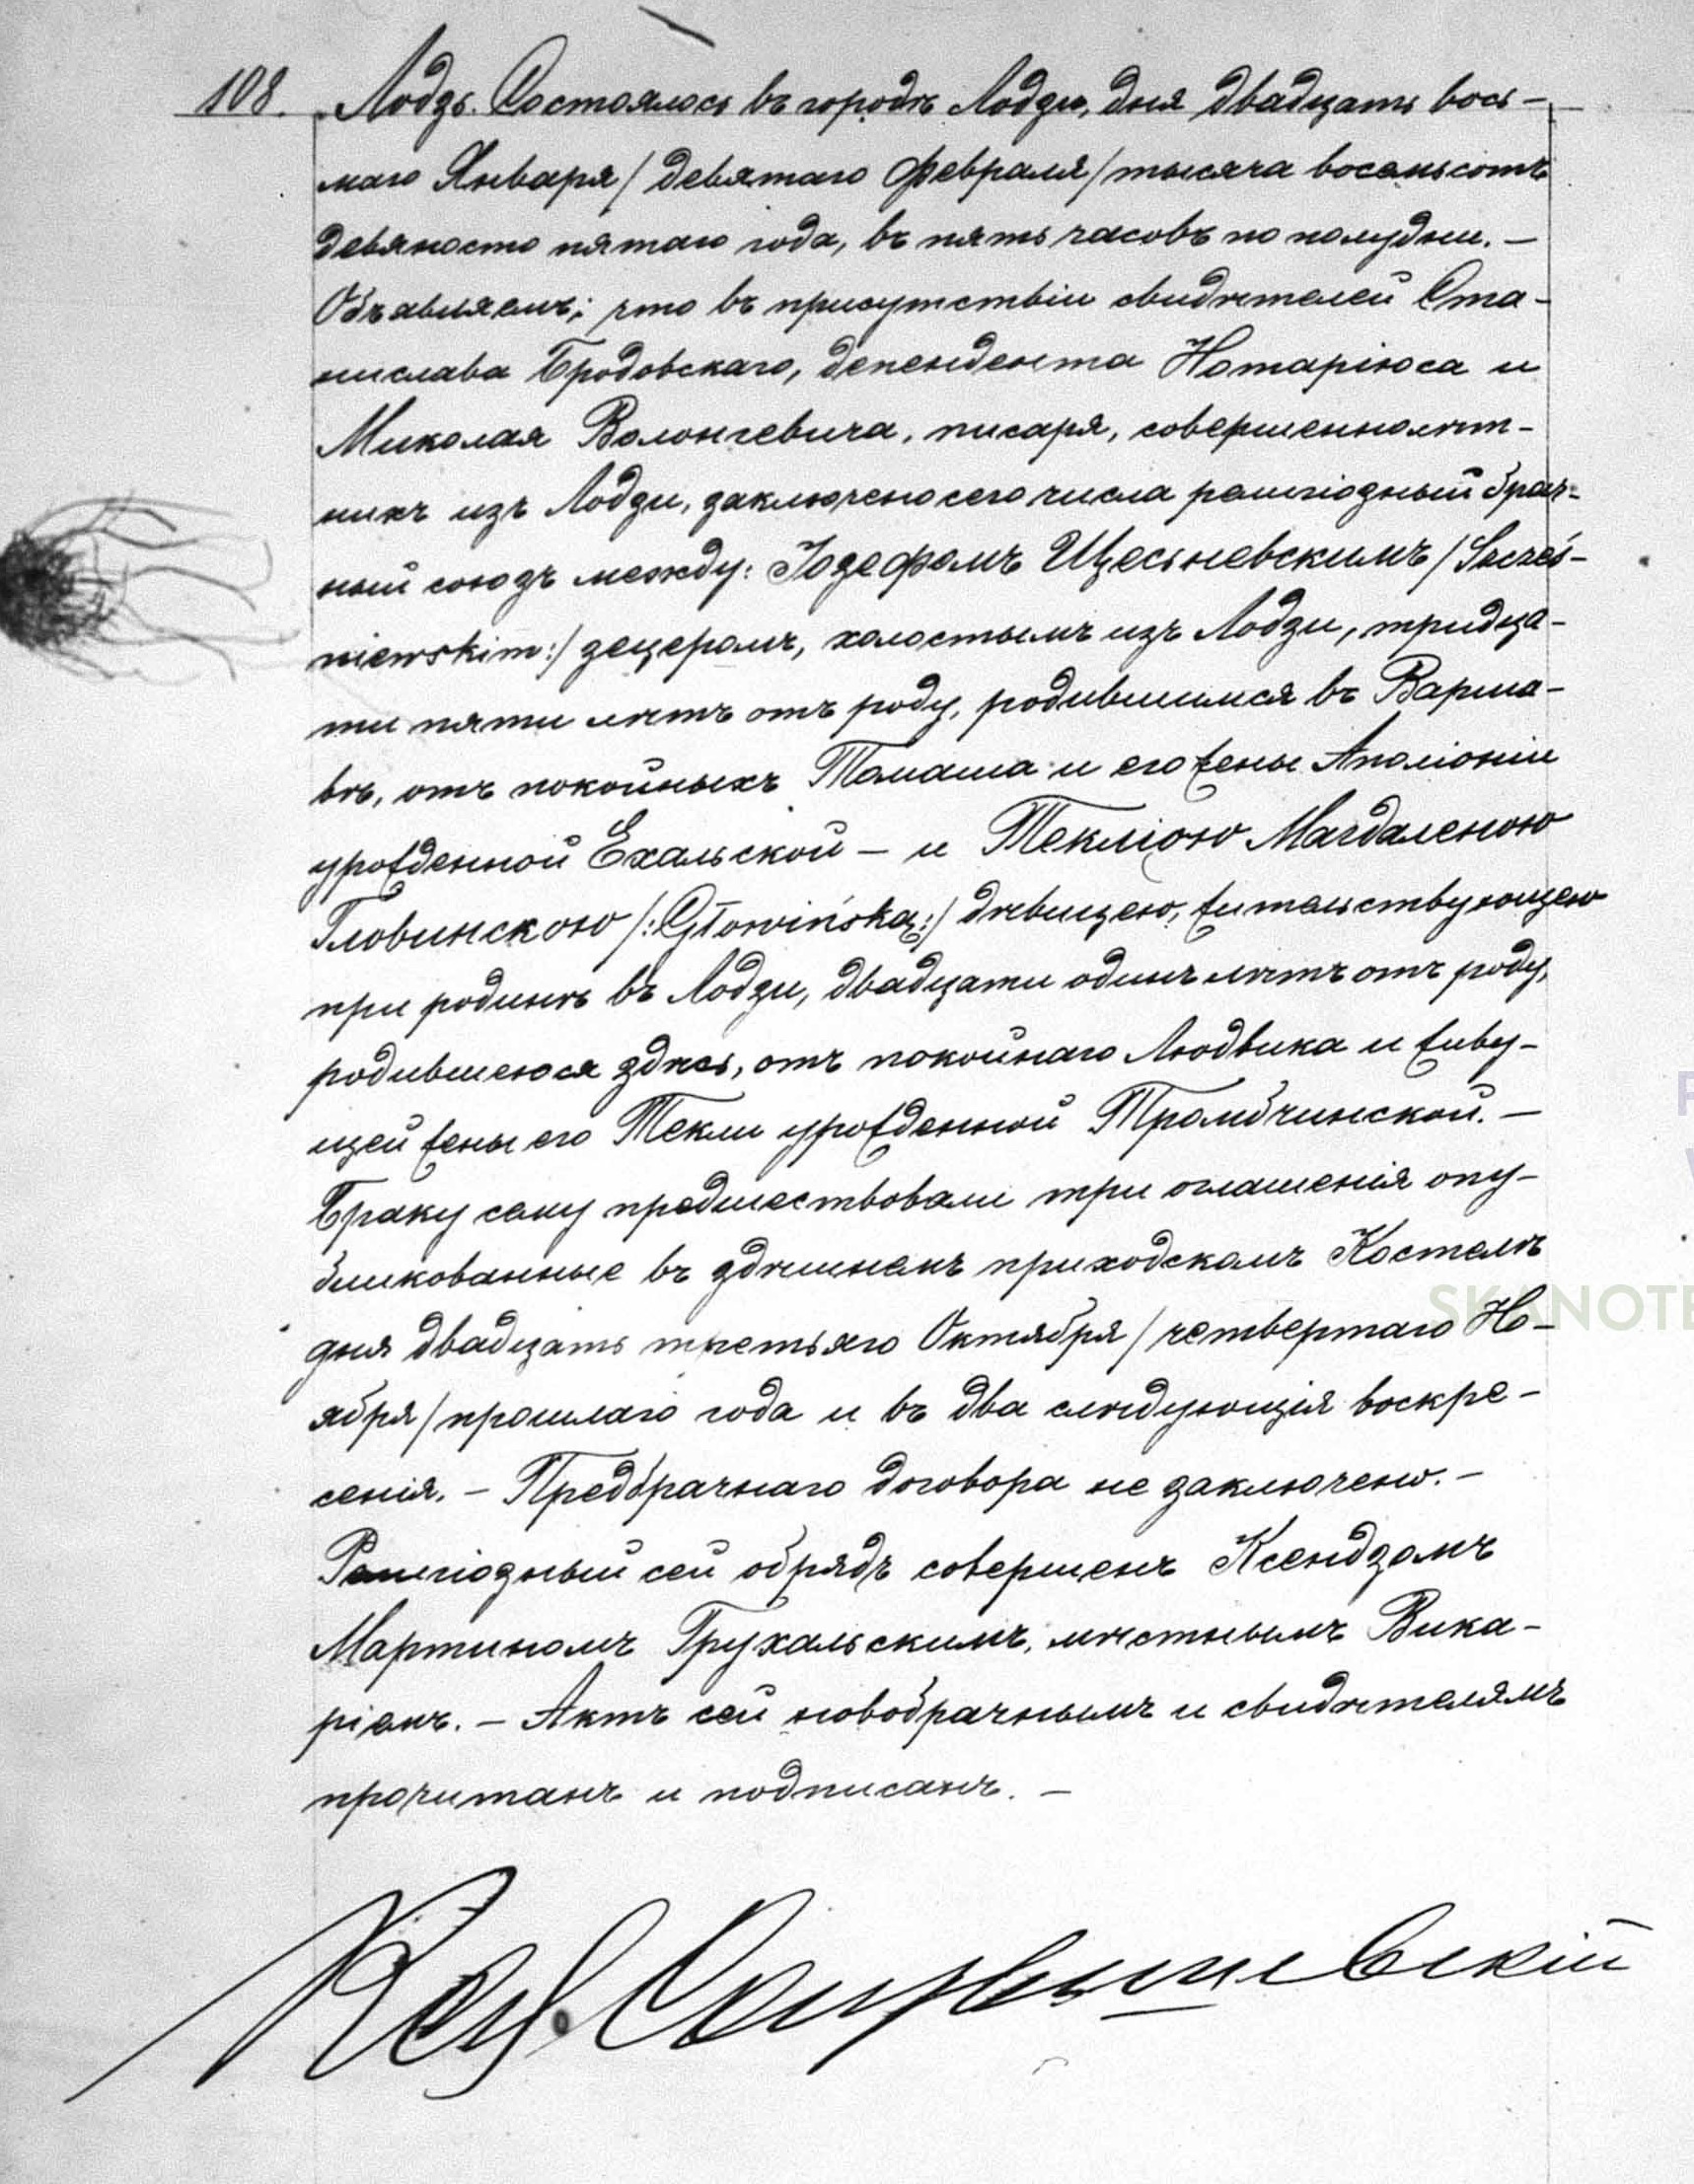 108. Лодзь. Состоялось въ городѣ Лодзи, дня двадцать вось-
маго Января / девятаго Февраля / тысяча восемьсотъ
девяносто пятаго года, въ пять часовъ по полудни. —
Объявляемъ; что въ присутствіи свидѣтелей Ста-
нислава Бродовскаго, депендента Нотаріюса и
Миколая Волонгевича, писаря, совершеннолѣт-
нихъ изъ Лодзи, заключено сего числа религіозный брач-
ный союзъ между: Іозефомъ Щесьневскимъ / Szcześ-
niewskim:/ зецеромъ, холостымъ изъ Лодзи, тридца-
ти пяти лѣтъ отъ роду, родившимся въ Варша-
вѣ, отъ покойныхъ Томаша и его жены Аполіоніи
урожденной Ехальской — и Текліою Магдаленою
Гловинскою /:Głowińską:/ дѣвицею, жительствующею
при родинѣ въ Лодзи, двадцати одинъ лѣтъ отъ роду,
родившеюся здѣсь, отъ покойнаго Людвика и живу-
щей жены его Текли урожденной Тромбчинской. —
Браку сему предшествовали три оглашенія опу-
бликованные въ здѣшнемъ приходскомъ Костелѣ
дня двадцать третьяго Октября / четвертаго Но-
ября / прошлаго года и въ два слѣдующія воскре-
сенія. — Предбрачнаго договора не заключено. —
Религіозный сей обрядъ совершенъ Ксендзомъ
Мартиномъ Грухальскимъ, мѣстнымъ Вика-
ріемъ. — Актъ сей новобрачнымъ и свидѣтелямъ
прочитанъ и подписанъ. —
SKANOTE